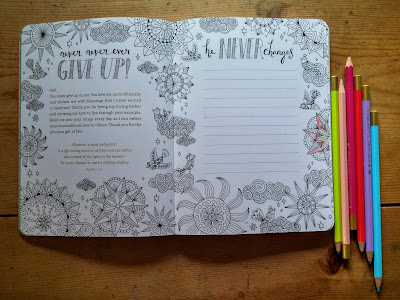 never never ever
GIVE UP!
God,
You never give up on me. You love me unconditionally
and shower me with blessings that I never earned
or deserved. Thank you for being my loving Father
and showing me how to live through your example.
Mold me into your image every day so I can reflect
your unconditional love to others. Thank you for the
precious gift of life.
Whatever is good and perfect
is a gift coming down to us from God our Father,
who created all the lights in the heavens.
He never changes or casts a shifting shadow.
JAMES 1:17
he NEVER changes